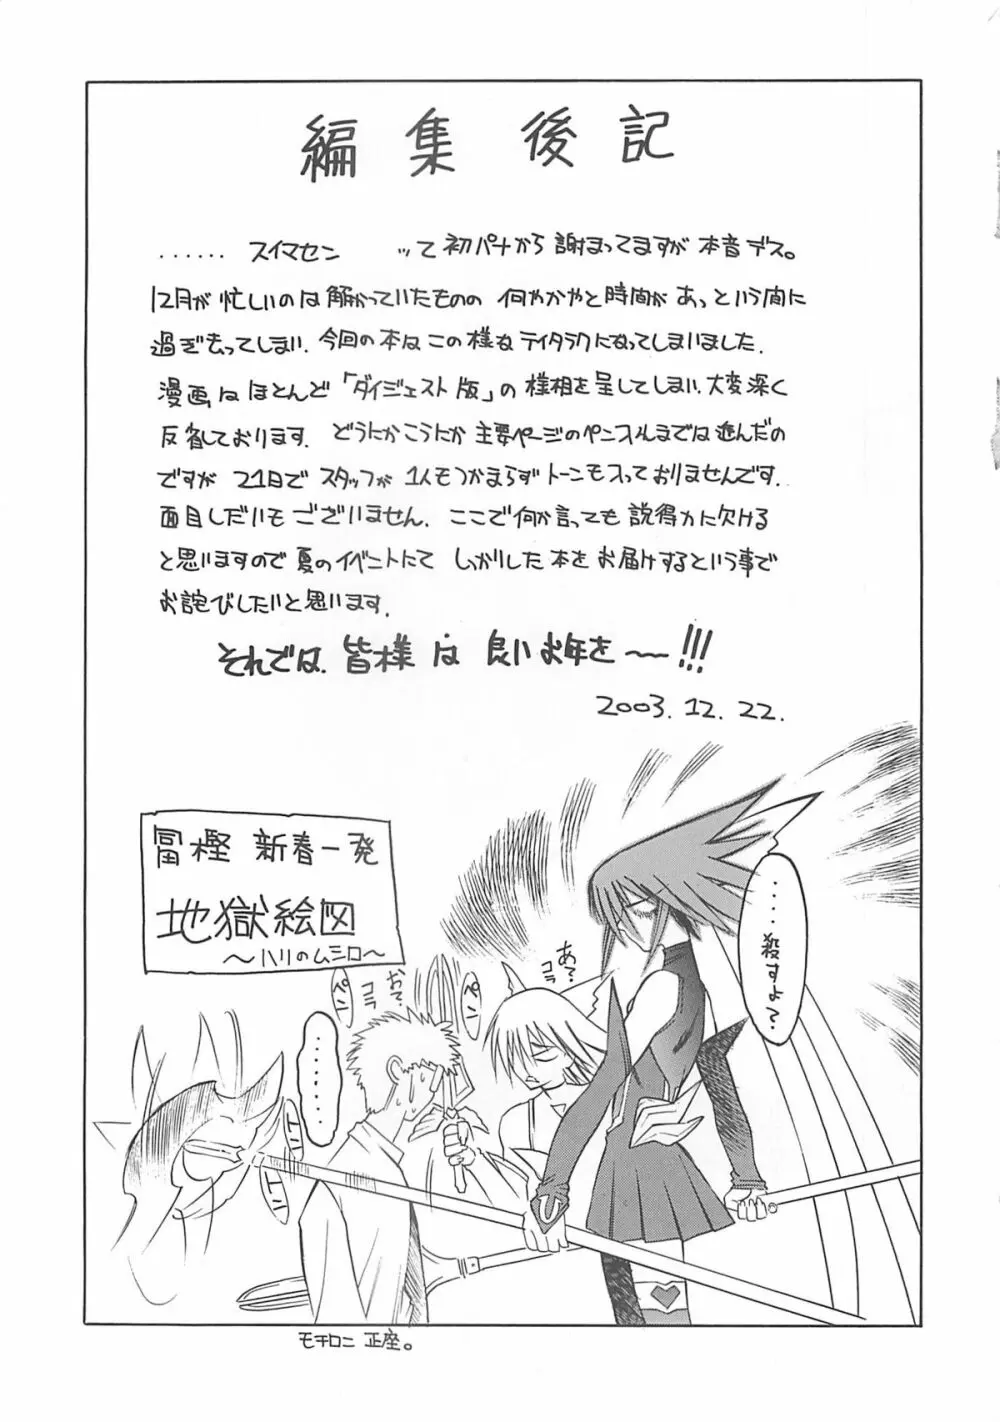 編集後記
‥‥‥ スイマセン ッて初パナから謝まってますが本音デス。
12月が忙しいのは解かっていたものの 何やかやと時間があっという間に
過ぎ去ってしまい、今回の本はこの様なテイタラクになってしまいました.
漫画はほとんど「ダイジェスト版」の様相を呈してしまい、大変深く
反省しております. どうにかこうにか主要ページのペン入れまでは進んだの
ですが 21日でスタッフが 1人もつかまらずトーンモ入っておりませんです.
面目しだいもございません. ここで何か言っても説得力に欠ける
と思いますので夏のイベントにて しっかりした本をお届けするという事で
お詫びしたいと思います.
それでは、皆様は 良いお年を〜!!!
2003.12.22.
冨樫 新春一発
地獄絵図
〜ハリのムシロ〜
‥‥‥殺すよ?
あ?
コラ
お?
コラ
ペン
ペン
‥‥‥
モチロン 正座。